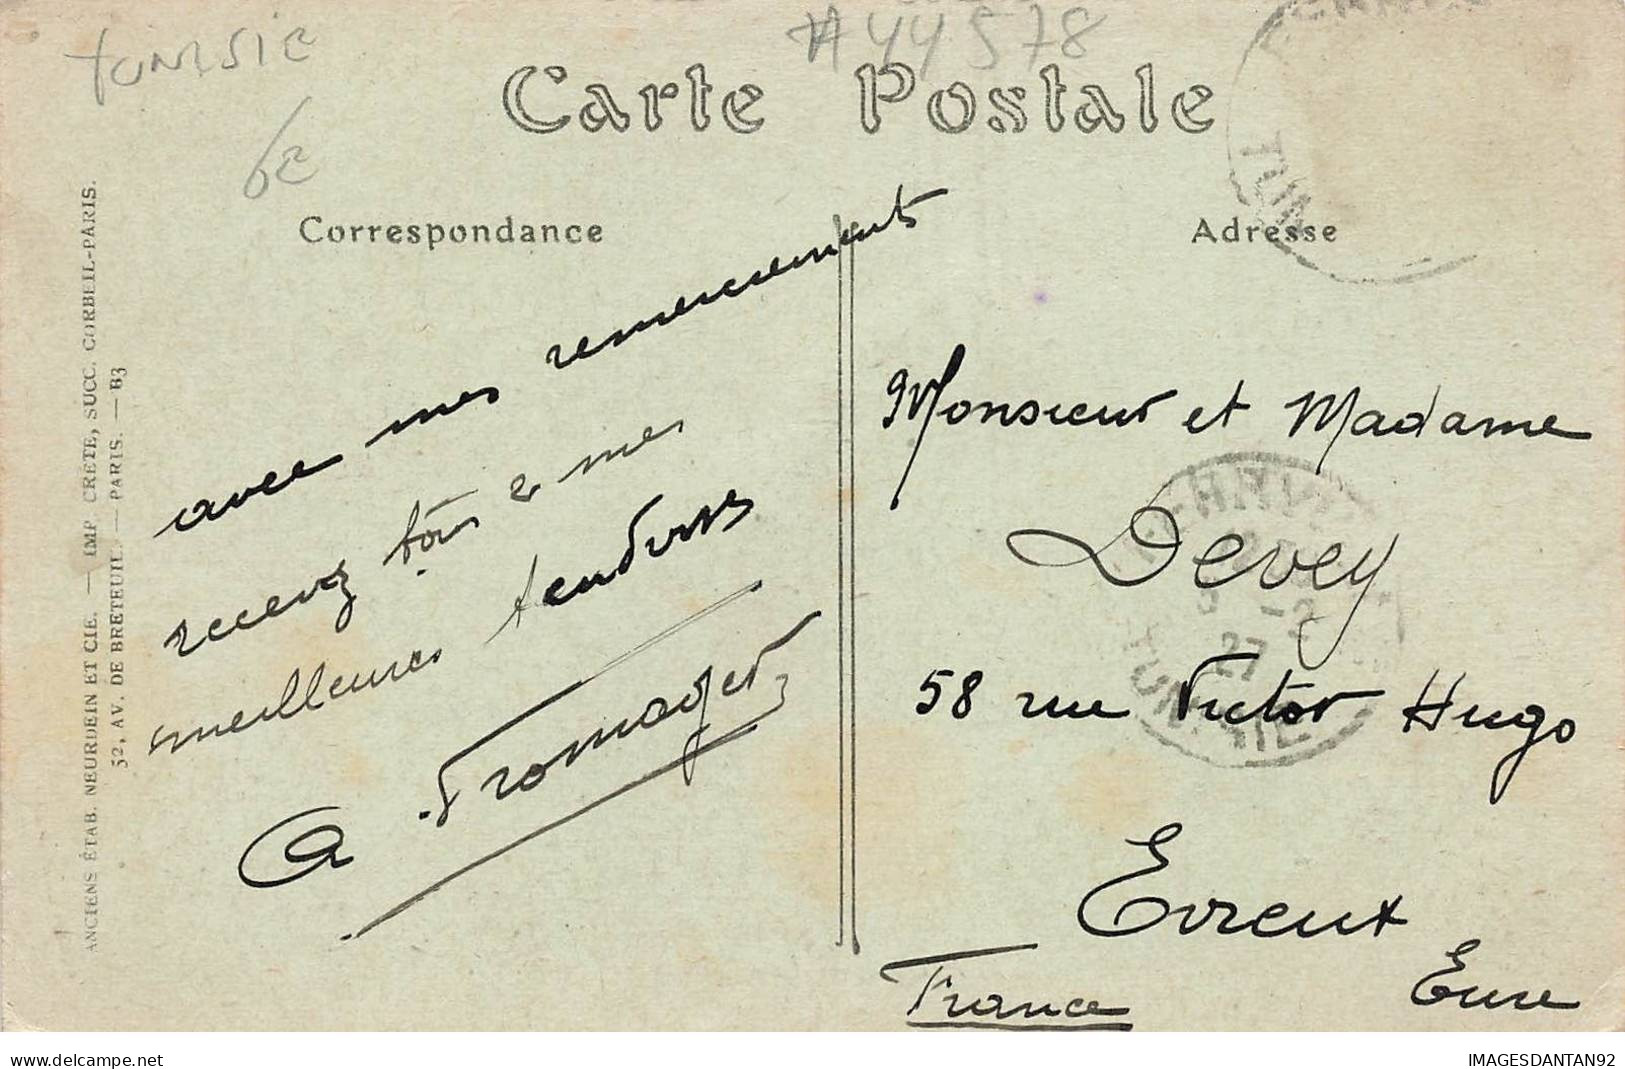 tunisie
#44578
6e
Carte Postale
Correspondance
Adresse
avec mes remerciements
recevez tous 2 mes
meilleures tendresses
A. Fromager
Monsieur et Madame
Devey
58 rue Victor Hugo
Evreux
Eure
France
ANCIENS ÉTAB. NEURDEIN ET CIE. — IMP. CRÉTÉ, SUCC. CORBEIL-PARIS.
52, AV. DE BRETEUIL. — PARIS. — B3
TUNI
-2
27
TUNISIE
delcampe.net
IMAGESDANTAN92